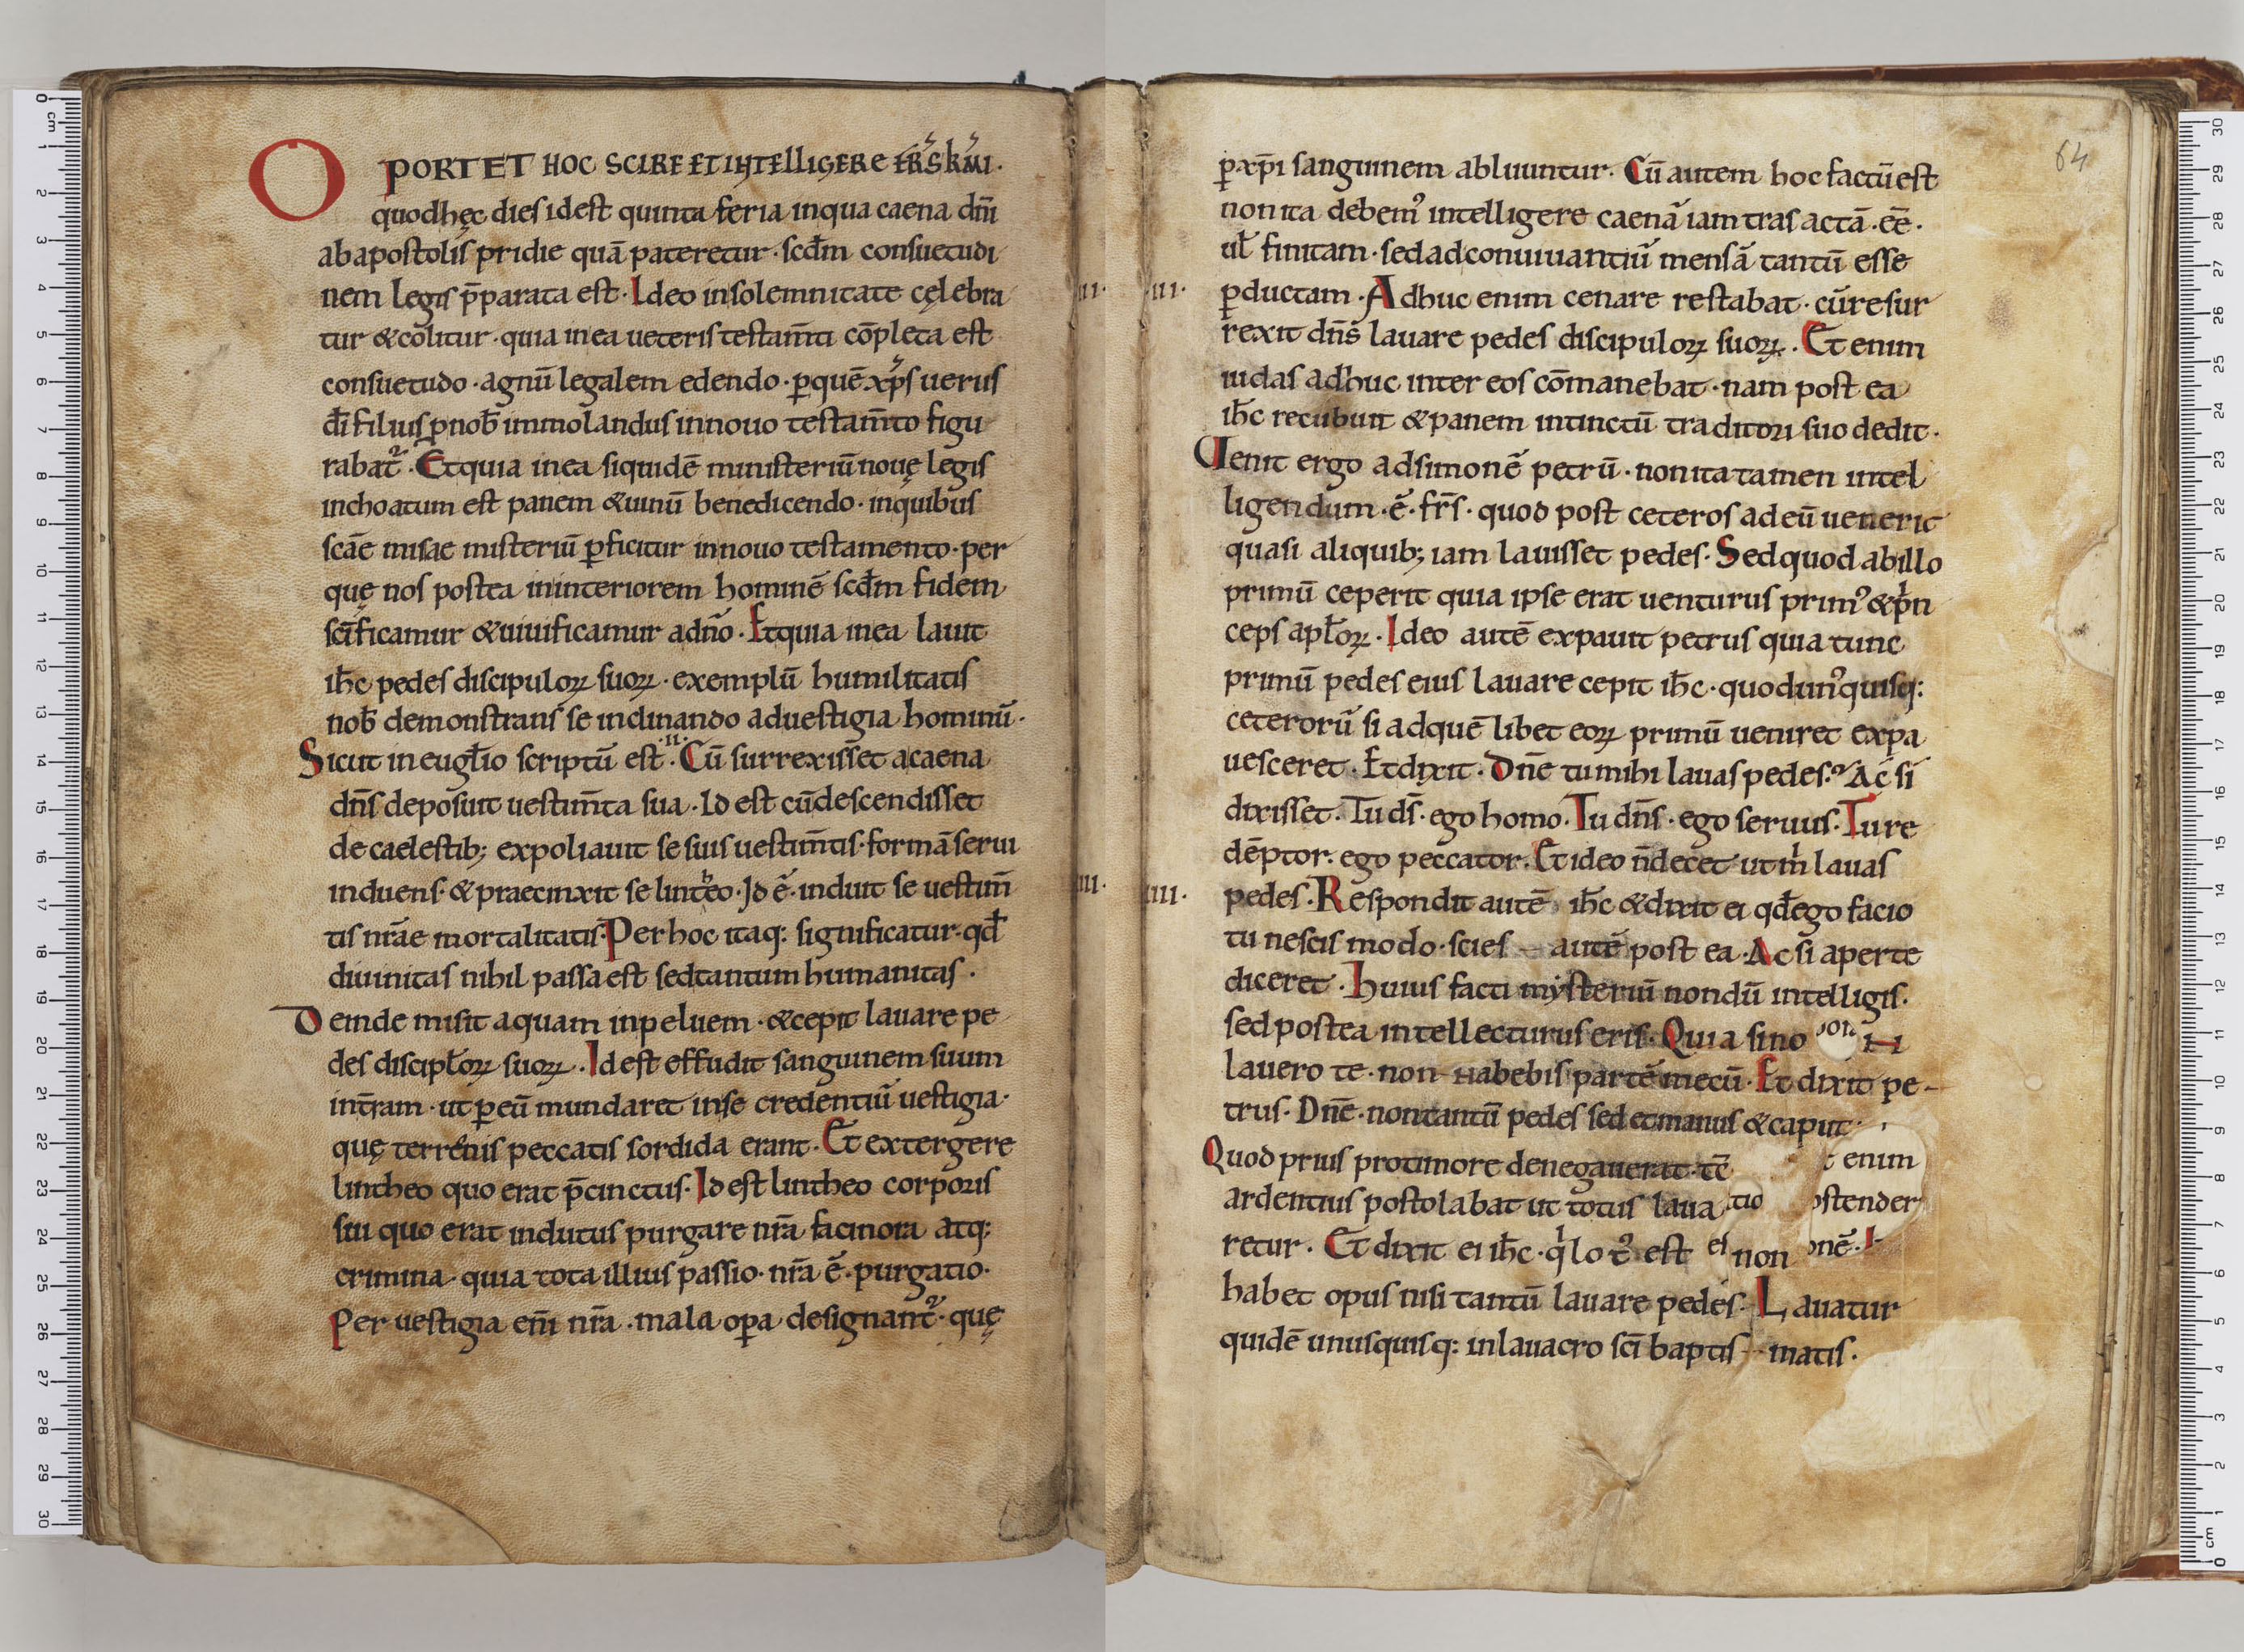 OPORTET HOC SCIRE ET INTELLIGERE FR̄S K̄MI.
quod hęc dies id est quinta feria in qua caena dn̄i
ab apostolis pridie quā pateretur · scd̄m consuetudi
nem legis p̄parata est · Ideo in solemnitate cęlebra
tur & colitur · quia in ea ueteris testam̄ti cōpleta est
consuetudo · agnū legalem edendo · ꝑ quē xp̄s uerus
dī filius ꝓ nob̄ immolandus in nouo testam̄to figu
rabat᷑ · Et quia in ea siquidē ministeriū nouę legis
inchoatum est panem & uinū benedicendo · in quibus
scāe misae misteriū ꝑficitur in nouo testamento · per
quę nos postea in interiorem hominē scd̄m fidem
scīficamur & uiuificamur ad n̄o · Et quia in ea lauit
ih̄c pedes discipuloꝝ suoꝝ · exemplū humilitatis
nob̄ demonstrans se inclinando ad uestigia hominū ·
Sicut in eugł̄io scriptū est · II · Cū surrexisset a caena
dn̄s deposuit uestim̄ta sua · Id est cū descendisset
de caelestib; expoliauit se suis uestim̄tis · formā serui
induens · & praecinxit se linteo · Id ē · induit se uestim̄
tis nr̄ae mortalitatis · Per hoc itaq: significatur · qd̄
diuinitas nihil passa est sed tantum humanitas ·
Deinde misit aquam in peluem · & cepit lauare pe
des discipł̄oꝝ suoꝝ · Id est effudit sanguinem suum
in t̄ram · ut ꝑ eū mundaret in se credentiū uestigia ·
quę terrenis peccatis sordida erant · Et extergere
lintheo quo erat p̄cinctus · Id est lintheo corporis
sui quo erat indutus purgare nr̄a facinora atq:
crimina · quia tota illius passio · nr̄a ē · purgatio ·
Per uestigia eni̅ nr̄a · mala oꝑa designant᷑ · quę
64
ꝑ xp̄i sanguinem abluuntur · Cū autem hoc factū est
non ita debem᷒ intelligere caenā iam trasactā · eē ·
ul̄ finitam · sed ad conuiuantiū mensā tantū esse
III · ꝑductam · Adhuc enim cenare restabat · cū resur
rexit dn̄s lauare pedes discipuloꝝ suoꝝ · Et enim
iudas adhuc inter eos cōmanebat · nam post ea
ih̄c recubuit & panem intinctū traditori suo dedit ·
Uenit ergo ad simonē petrū · non ita tamen intel
ligendum · ē · fr̄s · quod post ceteros ad eū uenerit
quasi aliquib; iam lauisset pedes · Sed quod ab illo
primū ceperit quia ipse erat uenturus prim᷒ & prin
ceps apł̄oꝝ · Ideo autē expauit petrus quia tunc
primū pedes eius lauare cepit ih̄c · quod un᷒quisq:
ceterorū si ad quē libet eoꝝ primū ueniret expa
uesceret · Et dixit · Dn̄e tu mihi lauas pedes · Ac si
dixisset · Tu ds̄ · ego homo · Tu dn̄s · ego seruus · Tu re
dēptor · ego peccator · Et ideo n̄ decet ut m̄ lauas
IIII · pedes · Respondit autē ih̄c & dixit ei qd̄ ego facio
tu nescis modo · scies autē post ea · Ac si aperte
diceret · Huius facti mysteriū nondū intelligis ·
sed postea intellecturus eris · Quia si no
lauero te · non habebis partē mecū · Et dixit pe-
trus · Dn̄e · non tantū pedes sed et manus & caput ·
Quod prius pro timore denegauerat · tē
ardentius postolabat ut totus laua
retur · Et dixit ei ih̄c · q lot᷒ est non
habet opus nisi tantū lauare pedes · Lauatur
quidē unusquisq: in lauacro scī baptis-matis ·